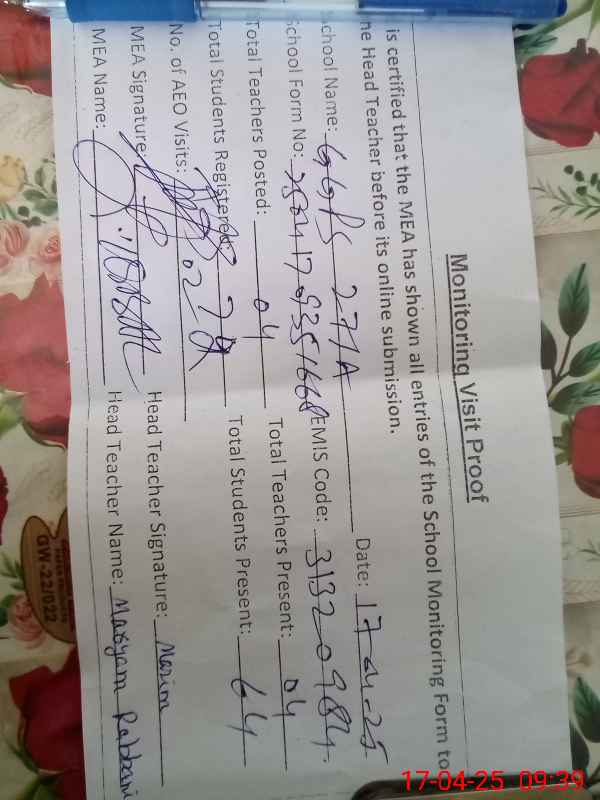 Monitoring Visit Proof
is certified that the MEA has shown all entries of the School Monitoring Form to
ne Head Teacher before its online submission.
School Name: GGPS 277/A Date: 17-04-25
School Form No: EMIS Code: 31320984
Total Teachers Posted: 04 Total Teachers Present: 04
Total Students Registered: Total Students Present: 64
No. of AEO Visits: 02
MEA Signature: Head Teacher Signature: Marim
MEA Name: Head Teacher Name: Maryam Rabbani
GW-22/022
17-04-25 09:39